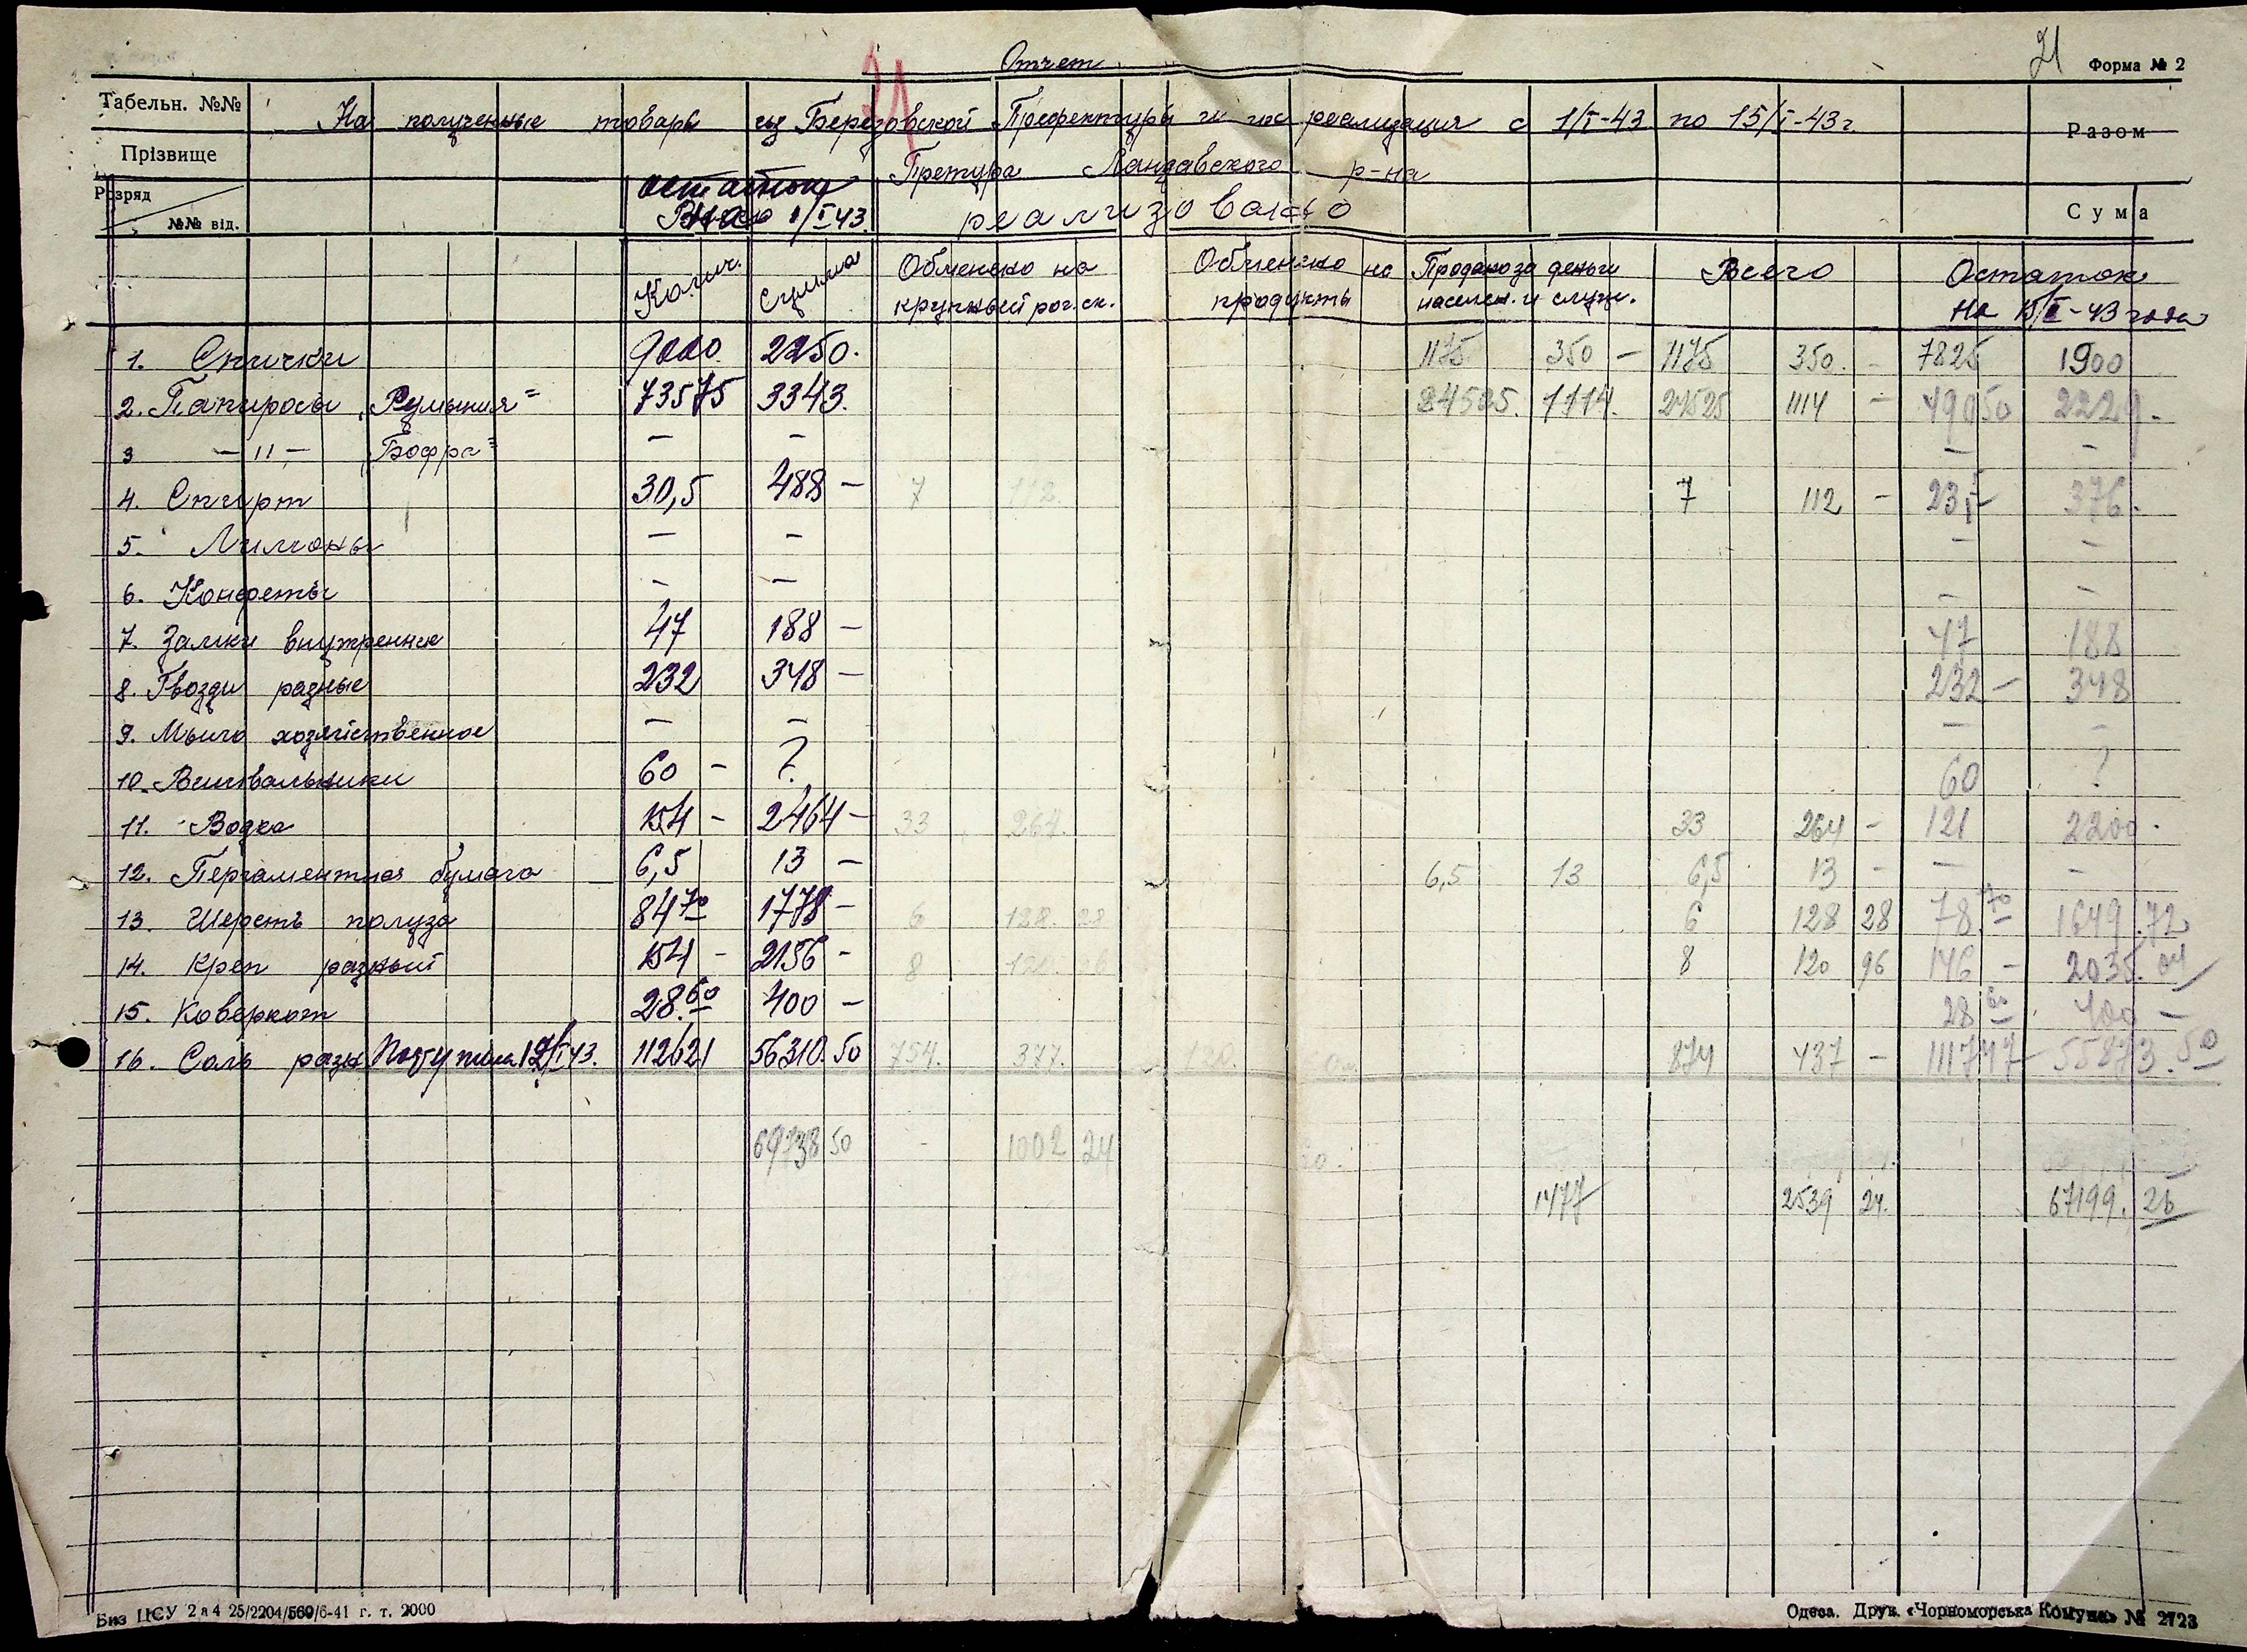 Отчет
21
21
Форма № 2
Табельн. №№
На полученные товары из Березовской Префектуры и их реализация с 1/I-43 по 15/I-43 г.
Разом
Прізвище
Претура Ландавского р-на
Розряд
№№ від.
остаток
на 1/I 43.
реализовано
Сума
Колич.
Сумма
Обменено на крупный рог. ск.
Обменено на продукты
Продано за деньги населен. и служ.
Всего
Остаток на 15/I-43 года
1. Спички 9000 2250. 1175 350 – 1175 350. – 7825 1900
2. Папиросы „Румыния" 73575 3343. 24525. 1114. 24525 1114 – 49050 2229.
3 –„– „Бофра" – – – –
4. Спирт 30,5 488 – 7 112. 7 112 – 23,5 376.
5. Лимоны – – – –
6. Конфеты – – – –
7. Замки внутренние 47 188 – 47 188
8. Гвозди разные 232 348 – 232 – 348
9. Мыло хозяйственное – – – –
10. 60 – ? 60 ?
11. Водка 154 – 2464 – 33 264. 33 264 – 121 2200.
12. Пергаментная бумага 6,5 13 – 6,5 13 6,5 13 – – –
13. Шерсть полуза 84 70 1778 – 6 128. 28 6 128 28 78. 70 1649. 72
14. Креп разный 154 – 2156 – 8 120 96 8 120 96 146 – 2035. 04
15. Коверкот 28. 60 400 – 28 60 400 –
16. Соль разн Поступила 12/I 43. 112621 56310. 50 754. 377. 120. 874 437 – 111747 55873. 50
69738 50 – 1002 24
1477 2539 24. 67199. 26
Биз ЦСУ 2 а 4 25/2204/569/6-41 г. т. 2000
Одеса. Друк. «Чорноморська Комуна» № 2723